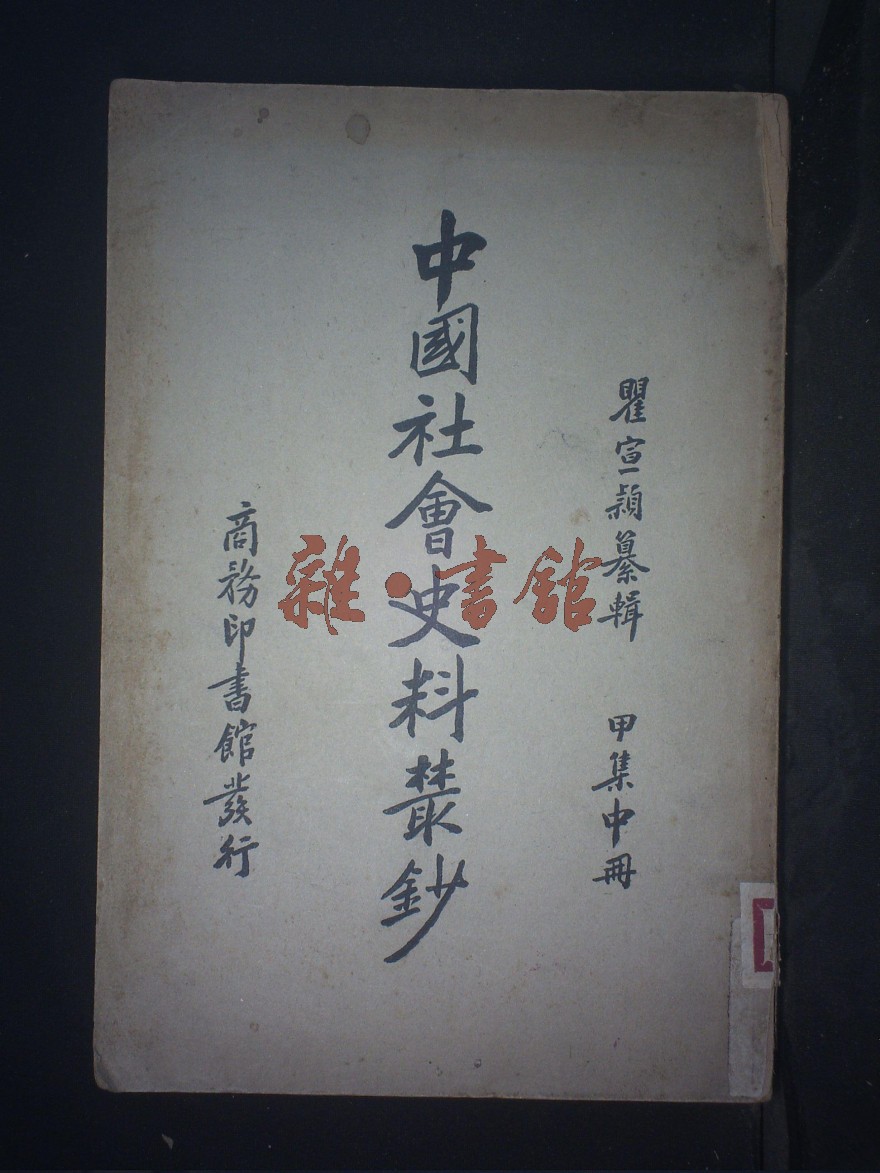 瞿宣穎纂輯 甲集中冊
中國社會史料叢鈔
商務印書館發行
雜·書館